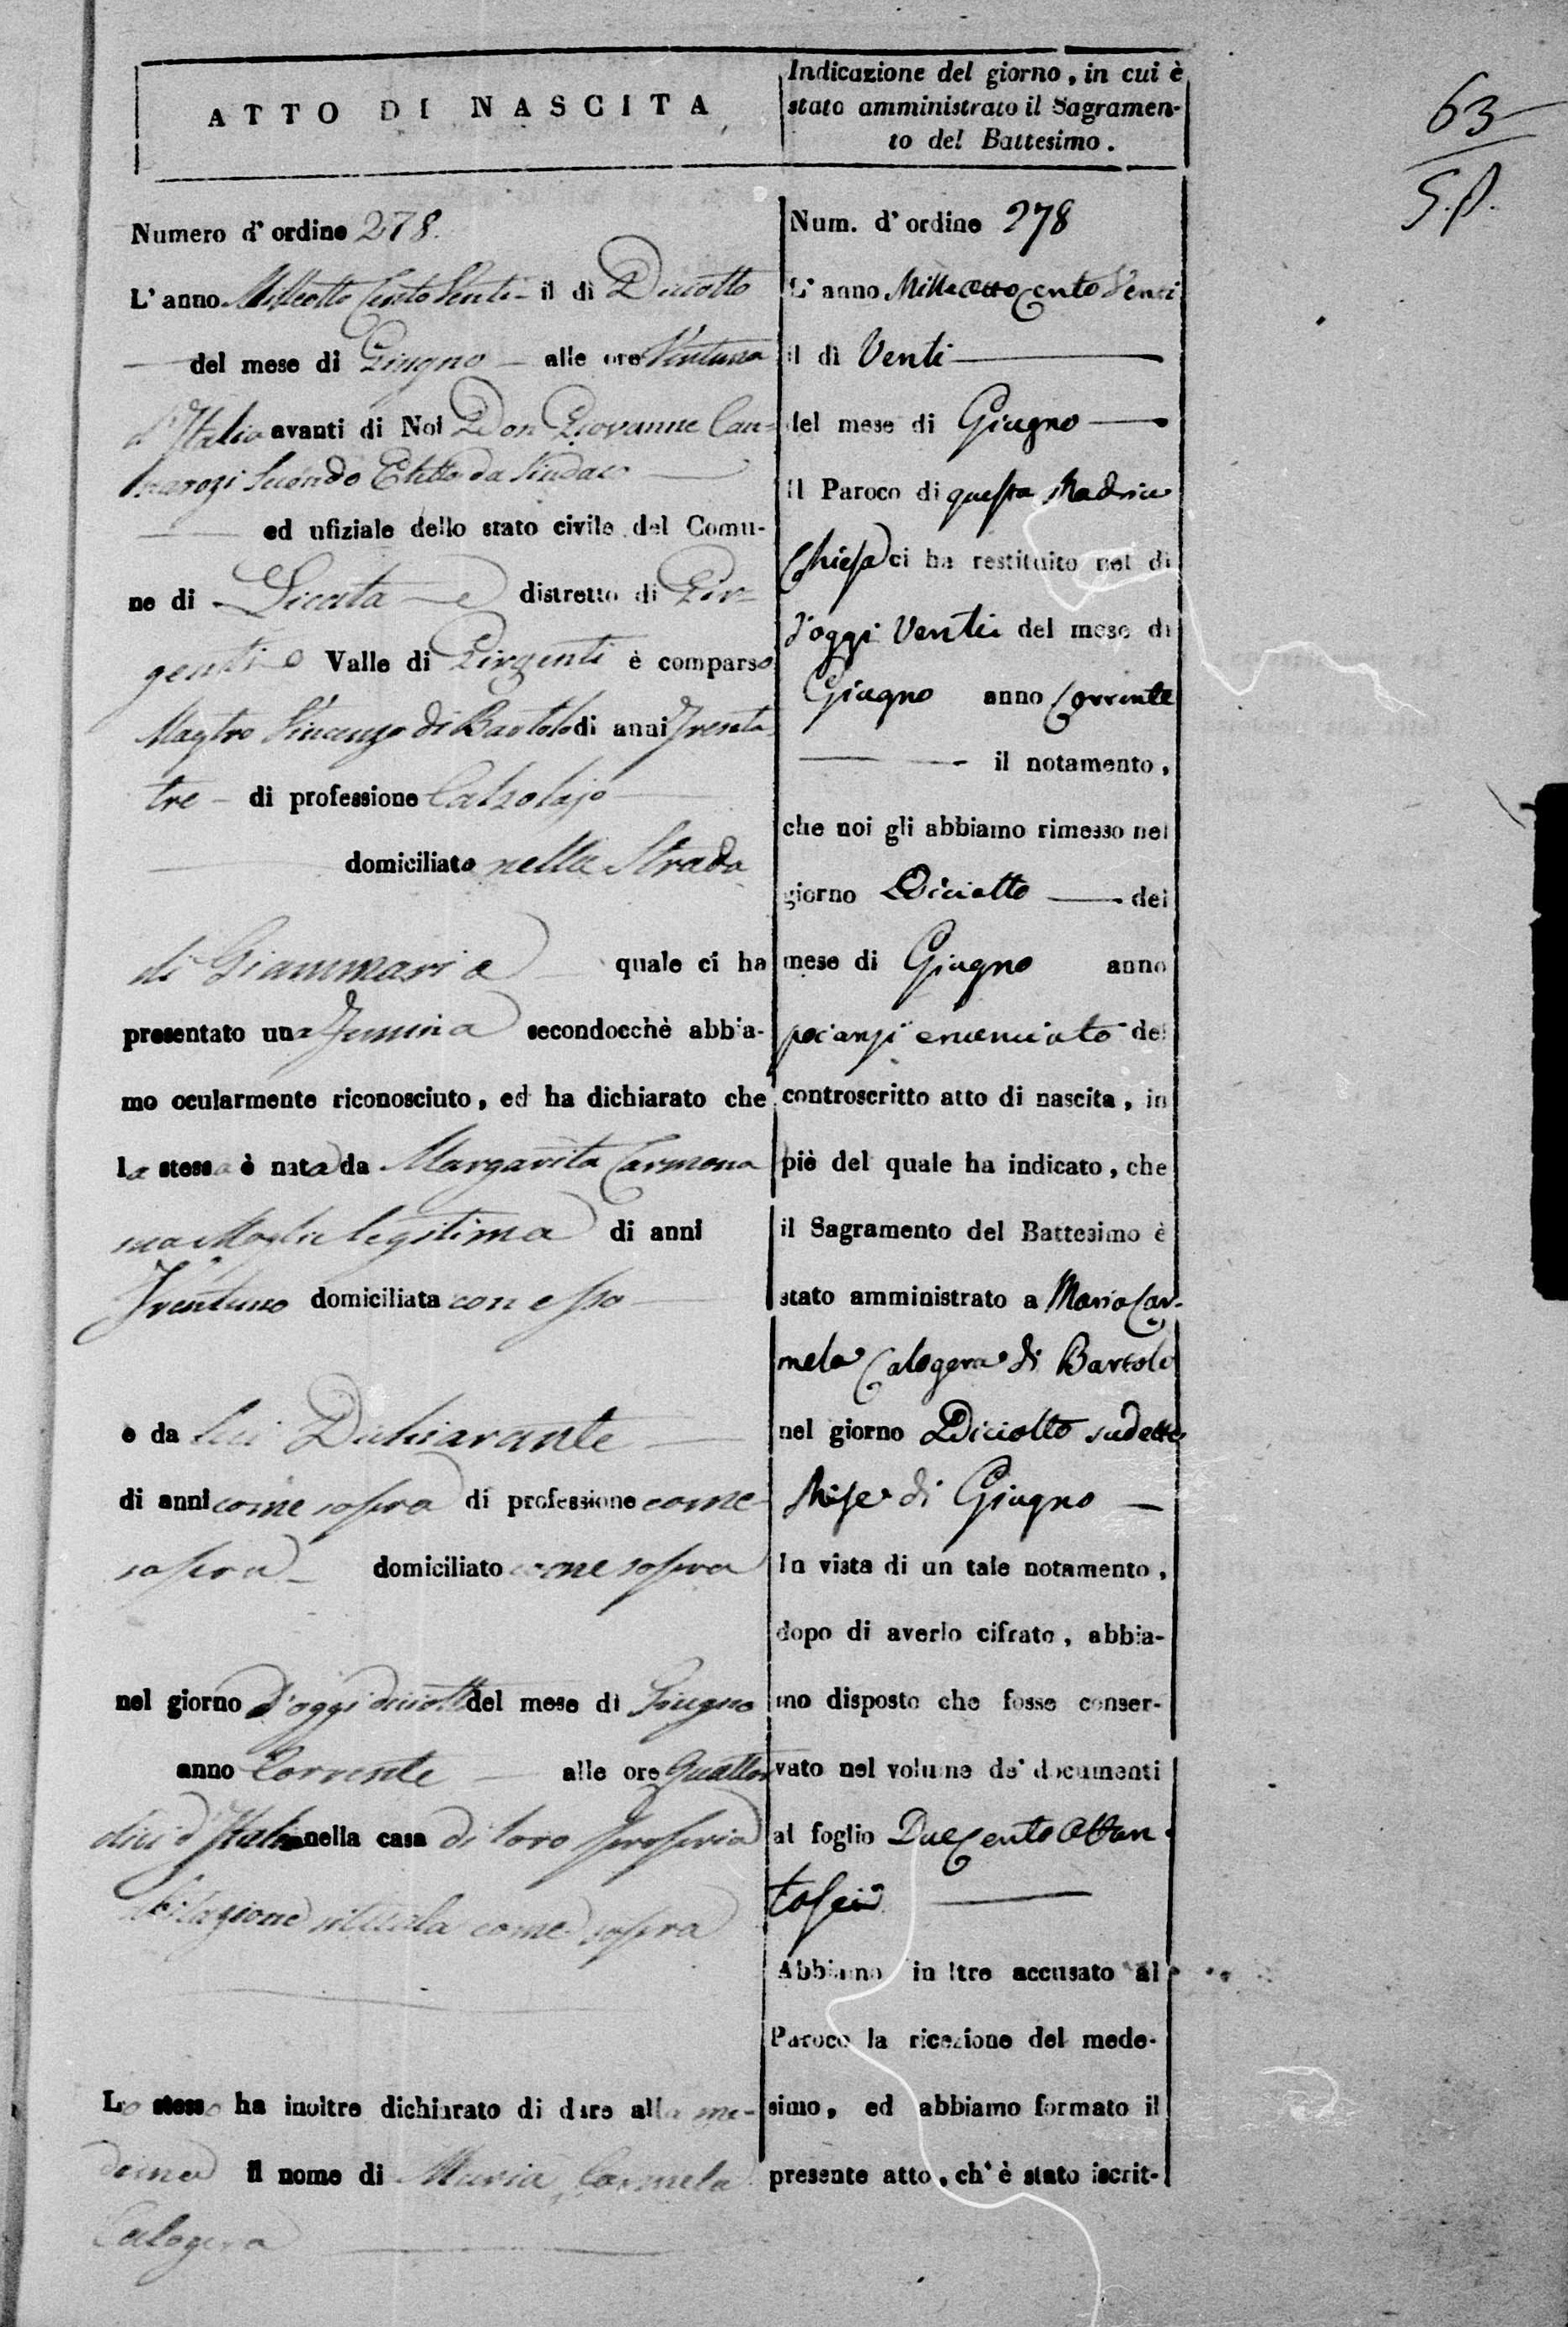 ATTO DI NASCITA
Numero d' ordine 278.
L' anno Milleotto Cento Venti il dì Diciotto
del mese di Giugno alle ore Ventuna
d'Italia avanti di Noi Don Giovanne Can=
narozi Secondo Eletto da Sindaco
ed ufiziale dello stato civile del Comu-
ne di Licata distretto di Gir=
genti Valle di Girgenti è comparso
Mastro Vincenzo di Bartolo di anni Trenta
tre di professione Calzolajo
domiciliato nella Strada
di Giammaria quale ci ha
presentato una Femina secondocchè abbia-
mo ocularmente riconosciuto, ed ha dichiarato che
la stessa è nata da Margarita Carmona
sua Moglie legitima di anni
Trentuno domiciliata con esso
e da Lui Dichiarante
di anni come sopra di professione come
sopra domiciliato come sopra
nel giorno d'oggi diciotto del mese di Giugno
anno Corrente alle ore Quattor
dici d'Italia nella casa di loro propria
abitazione situata come sopra
Lo stesso ha inoltre dichiarato di dare alla me-
desima il nome di Maria Carmela
Calogera
Indicazione del giorno, in cui è
stato amministrato il Sagramen-
to del Battesimo.
Num. d' ordine 278
L' anno Mille otto cento Venti
il dì Venti
del mese di Giugno
Il Paroco di questa Madrice
Chiesa ci ha restituito nel dì
d'oggi Venti del mese di
Giugno anno Corrente
il notamento,
che noi gli abbiamo rimesso nel
giorno Diciotto del
mese di Giugno anno
poc'anzi enunciato del
controscritto atto di nascita, in
piè del quale ha indicato, che
il Sagramento del Battesimo è
stato amministrato a Maria Car-
mela Calogera di Bartolo
nel giorno Diciotto sudetto
Mese di Giugno
In vista di un tale notamento,
dopo di averlo cifrato, abbia-
mo disposto che fosse conser-
vato nel volume de' documenti
al foglio Duecento Ottan-
tasei
Abbiamo inoltre accusato al
Paroco la ricezione del mede-
simo, ed abbiamo formato il
presente atto, ch' è stato iscrit-
63